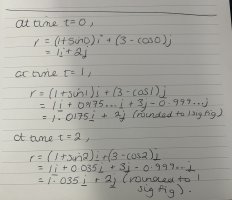 at time t=0,
r = (1+sin0)i + (3-cos0)j
= 1i + 2j
at time t=1,
r = (1+sin1)i + (3-cos1)j
= 1i + 0.0175...i + 3j - 0.999...j
= 1.0175i + 2j (rounded to 1 sig fig)
at time t=2,
r = (1+sin2)i + (3-cos2)j
= 1i + 0.035i + 3j - 0.999...j
= 1.035i + 2j (rounded to 1
sig fig).